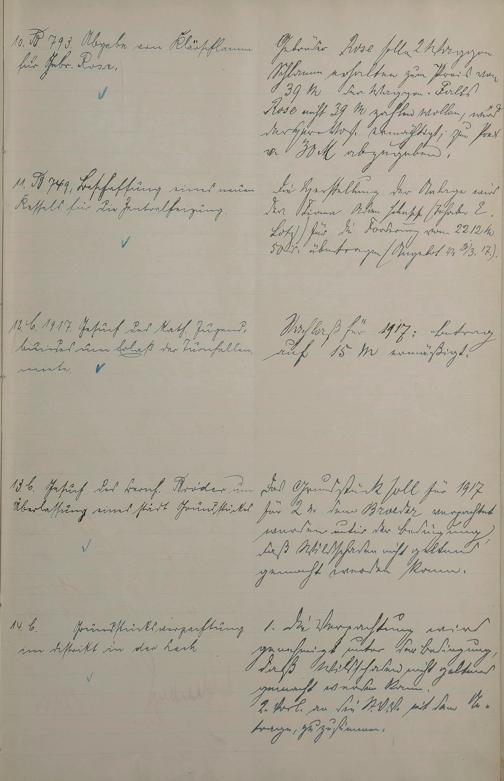 10. B 793. Abgabe von Klärschlamm
für Gebr. Rose.
Gebrüder Rose sollen 2 Waggon
Schlamm erhalten zum Preis von
39 M der Waggon. Falls
Rose nicht 39 M zahlen wollen, wird
ermächtigt, zum Preis
v. 30 M abzugeben.
11. B 749, Beschaffung eines neuen
Kessels für die Zentralheizung.
Die Herstellung der Anlage wird
der Firma Adam (Inhaber E.
Lotz) für die Forderung von 2212 M
50 übertragen (Angebot 17).
12. b. 1917 Gesuch des Kath. Jugend-
bundes um Erlaß der Turnhallen
miete.
Nachlaß für 1917: Betrag
auf 15 M ermäßigt.
13. b. Gesuch des Bernh. Bröder um
Überlassung eines städt Grundstücks
Das Grundstück soll für 1917
für 2 M dem Broeder verpachtet
werden unter der Bedingung,
daß Wildschaden nicht geltend
gemacht werden kann.
14. b. Grundstücksverpachtung
im Distrikt in der Lach
1. Die Verpachtung wird
genehmigt unter der Bedingung,
daß Wildschaden nicht geltend
gemacht werden kann.
2. Vorl. an die St.V.V. mit dem An-
trage, zuzustimmen.